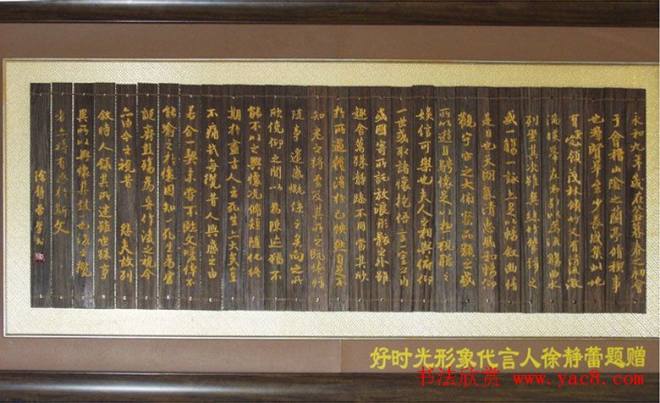 永和九年歲在癸丑暮春之初會
于會稽山陰之蘭亭脩禊事
也羣賢畢至少長咸集此地
有崇領茂林脩竹又有清流激
湍暎帶左右引以為流觴曲水
列坐其次雖無絲竹管弦之
盛一觴一詠亦足以暢敘幽情
是日也天朗氣清惠風和暢仰
觀宇宙之大俯察品類之盛
所以遊目騁懷足以極視聽之
娛信可樂也夫人之相與俯仰
一世或取諸懷抱悟言一室之內
或因寄所託放浪形骸之外雖
趣舍萬殊靜躁不同當其欣
於所遇暫得於己快然自足不
知老之將至及其所之既惓情
隨事遷感慨係之矣向之所
欣俛仰之間以為陳迹猶不
能不以之興懷況脩短隨化終
期於盡古人云死生亦大矣豈
不痛哉每攬昔人興感之由
若合一契未嘗不臨文嗟悼不
能喻之於懷固知一死生為虛
誕齊彭殤為妄作後之視今
亦由今之視昔 悲夫故列
敘時人錄其所述雖世殊事
異所以興懷其致一也後之攬
者亦將有感於斯文
徐靜蕾
好时光形象代言人徐静蕾题赠
书法欣赏 www.yac8.com